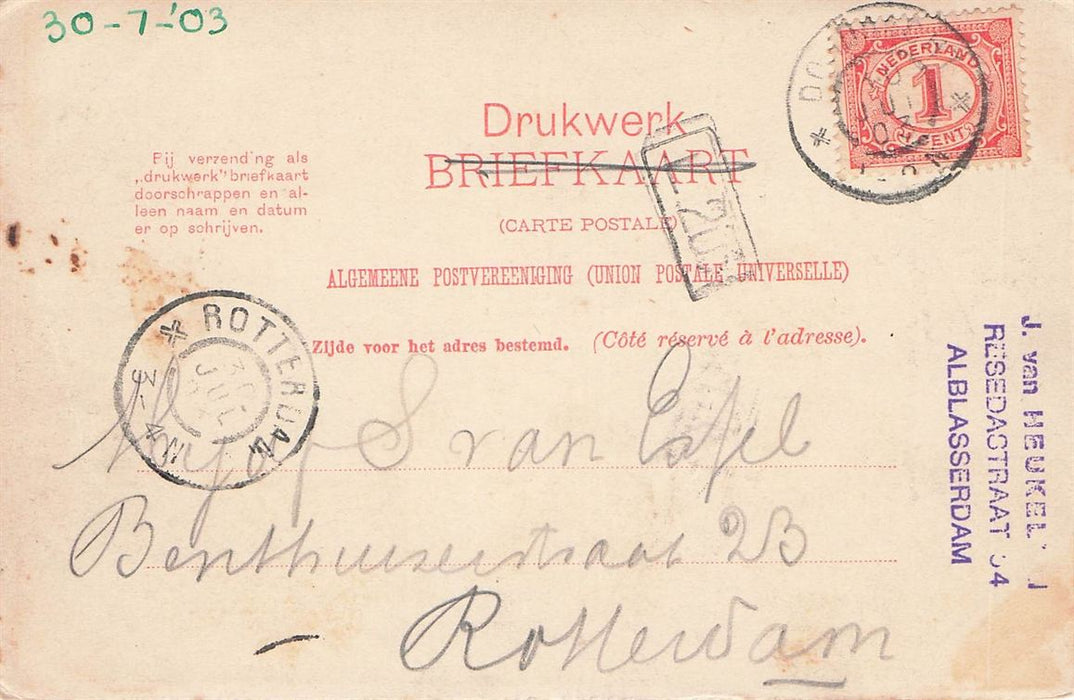 30-7-'03
NEDERLAND
1
CENT
Drukwerk
BRIEFKAART
(CARTE POSTALE)
ALGEMEENE POSTVEREENIGING (UNION POSTALE UNIVERSELLE)
Zijde voor het adres bestemd. (Côté réservé à l'adresse).
Bij verzending als
„drukwerk" briefkaart
doorschrappen en al-
leen naam en datum
er op schrijven.
ROTTERDAM
30
JUL
3-4
S van Essel
Benthuizerstraat 23
Rotterdam
J. van
RESEDASTRAAT
ALBLASSERDAM